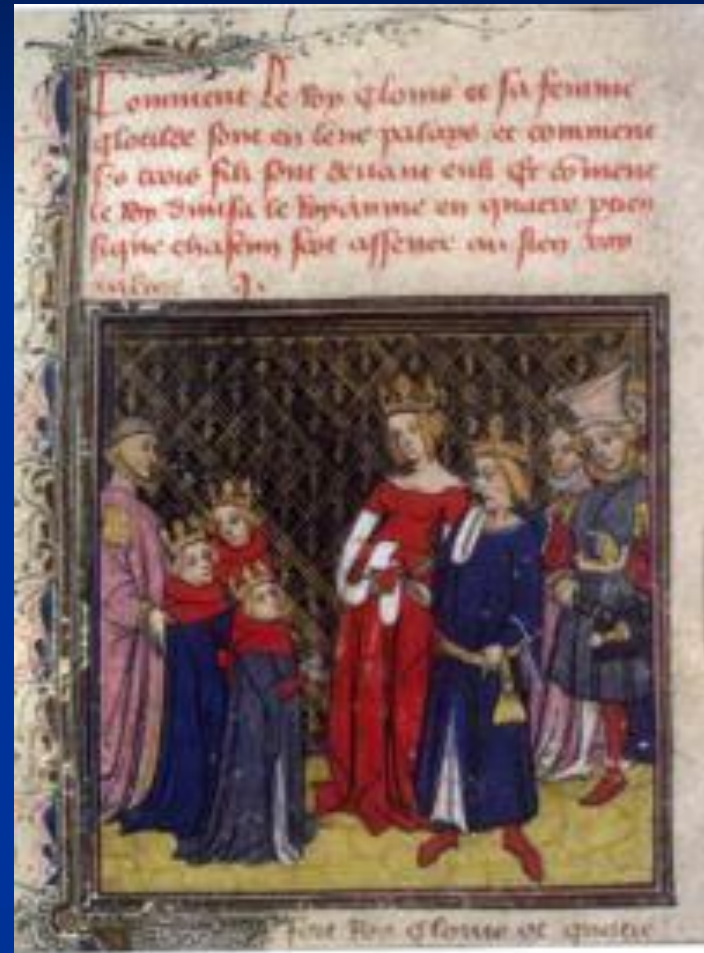 Comment le Roy clouis et sa femme
clotilde sont en leur palays et comment
trois filz sont deuant eulx Et coment
le Roy diuisa le Royaume en quatre
que chascun soit au sien
J.
Roy clouis et quatre